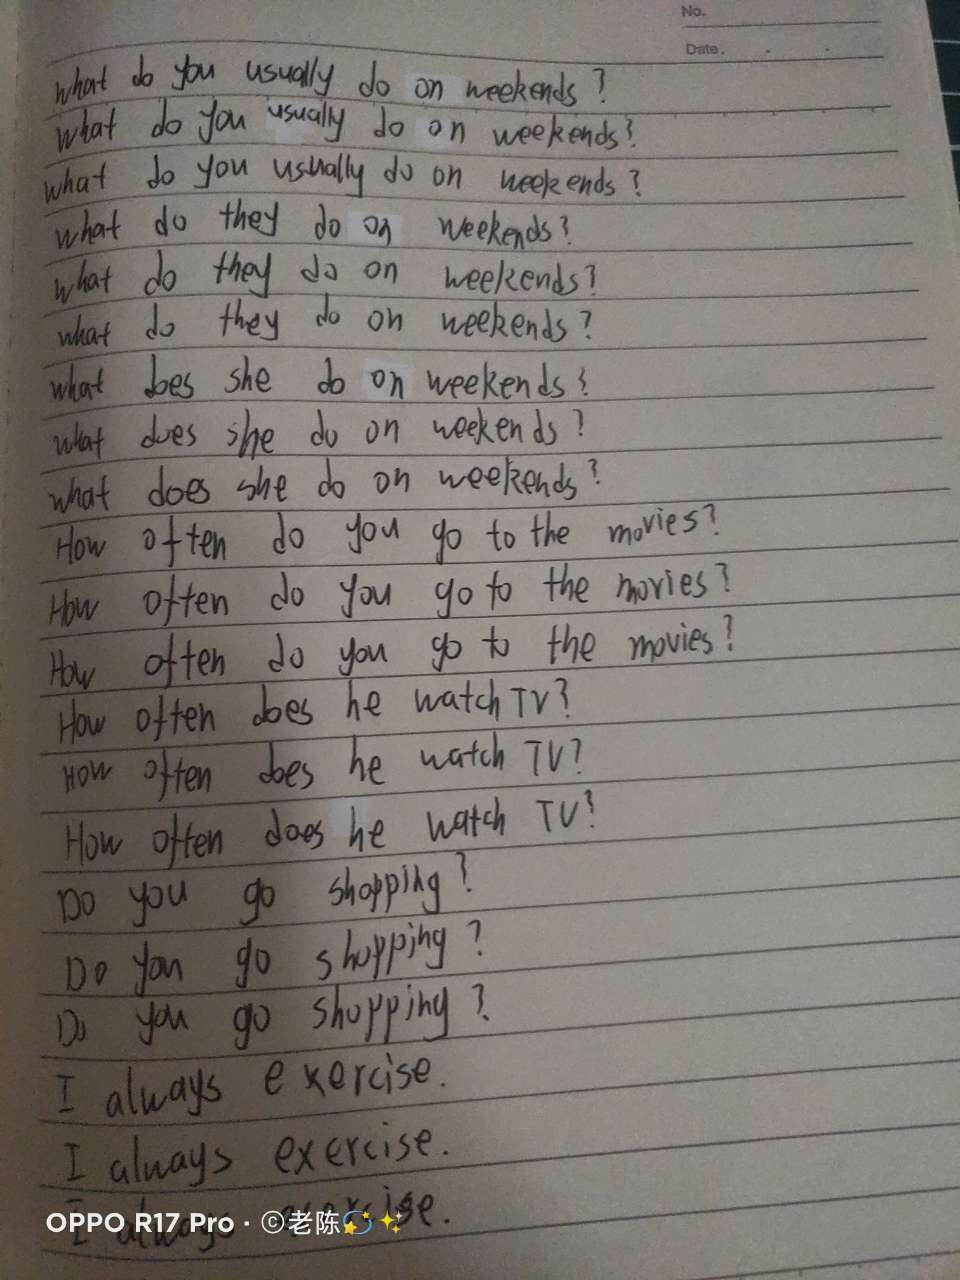 No.
Date.
what do you usually do on weekends?
What do you usually do on weekends?
what do you usually do on weekends?
what do they do on weekends?
what do they do on weekends?
what do they do on weekends?
what does she do on weekends?
what does she do on weekends?
what does she do on weekends?
How often do you go to the movies?
How often do you go to the movies?
How often do you go to the movies?
How often does he watch TV?
How often does he watch TV?
How often does he watch TV?
Do you go shopping?
Do you go shopping?
Do you go shopping?
I always exercise.
I always exercise.
I always exercise.
OPPO R17 Pro · ©老陈💫✨